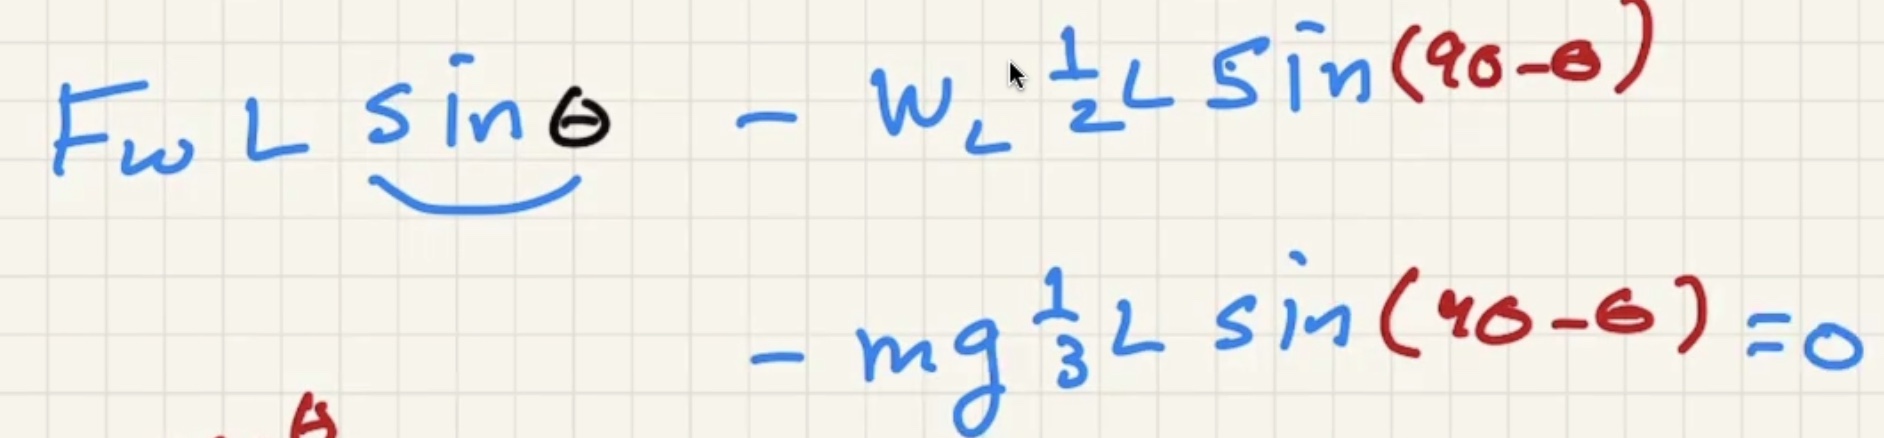 F_w L sin θ - W_L 1/2 L sin (90-θ)
- mg 1/3 L sin (90-θ) = 0